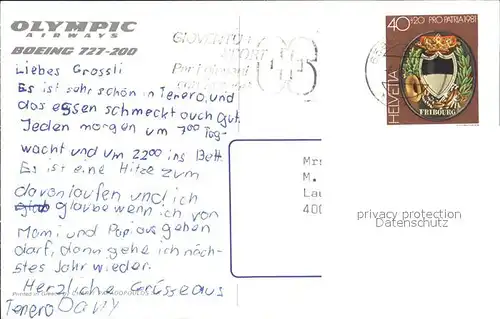 OLYMPIC
AIRWAYS
BOEING 727-200
Liebes Grossli
Es ist sehr schön in Tenero, und
das essen schmeckt auch gut.
Jeden morgen um 7⁰⁰ Tag-
wacht und um 22⁰⁰ ins Bett.
Es ist eine Hitze zum
davonlaufen und ich
glaube wenn ich von
Mami und Papi aus gehen
darf, dann gehe ich näch-
stes Jahr wieder.
Herzliche Grüsse aus
Tenero Dany
Printed in Greece by
GIOVENTÙ
SPORT
40+20 PRO PATRIA 1981
HELVETIA
FRIBOURG
Mrs
M.
Lau
400
privacy protection
Datenschutz